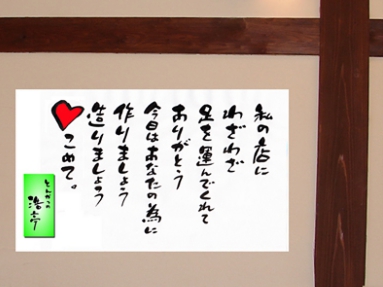 私の店に
わざわざ
足を運んでくれて
ありがとう
今日はあなたの為に
作りましょう
造りましょう
こめて。
とんかつの
浩亭